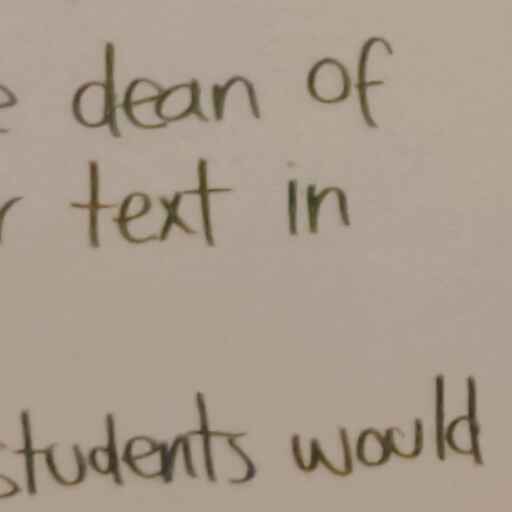 dean of
text in
students would